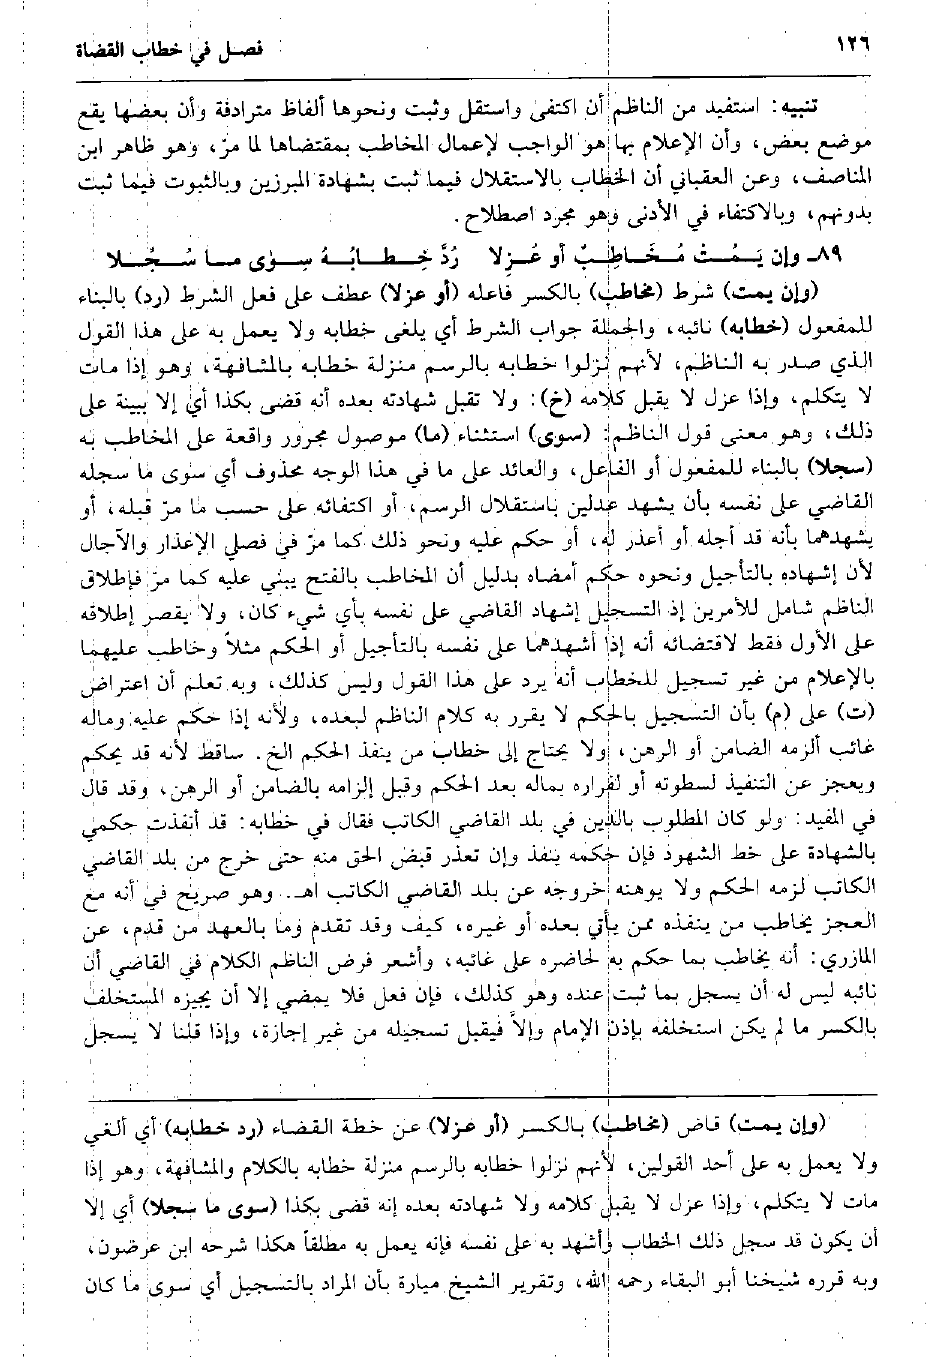 ١٢٦ فصل في خطاب القضاة
تنبيه: استفيد من الناظم أن اكتفى واستقل وثبت ونحوها ألفاظ مترادفة وأن بعضها يقع
موضع بعض، وأن الإعلام بها هو الواجب لإعمال المخاطب بمقتضاها لما مرّ، وهو ظاهر ابن
المناصف، وعن العقباني أن الخطاب بالاستقلال فيما ثبت بشهادة المبرزين وبالثبوت فيما ثبت
بدونهم، وبالاكتفاء في الأدنى وهو مجرد اصطلاح.
٨٩ـ وإن يَمُتْ مُخَاطِبٌ أو عُزِلا رُدَّ خِطابُهُ سِوَى ما سُجِّلا
(وإن يمت) شرط (مخاطب) بالكسر فاعله (أو عزلا) عطف على فعل الشرط (رد) بالبناء
للمفعول (خطابه) نائبه، والجملة جواب الشرط أي يلغى خطابه ولا يعمل به على هذا القول
الذي صدر به الناظم، لأنهم نزلوا خطابه بالرسم منزلة خطابه بالمشافهة، وهو إذا مات
لا يتكلم، وإذا عزل لا يقبل كلامه (خ): ولا تقبل شهادته بعده أنه قضى بكذا أي إلا ببينة على
ذلك، وهو معنى قول الناظم: (سوى) استثناء (ما) موصول مجرور واقعة على المخاطب به
(سجلا) بالبناء للمفعول أو الفاعل، والعائد على ما في هذا الوجه محذوف أي سوى ما سجله
القاضي على نفسه بأن يشهد عدلين باستقلال الرسم، أو اكتفائه على حسب ما مرّ قبله، أو
يشهدهما بأنه قد أجله أو أعذر له، أو حكم عليه ونحو ذلك كما مرّ في فصلي الإعذار والآجال
لأن إشهاده بالتأجيل ونحوه حكم أمضاه بدليل أن المخاطب بالفتح يبني عليه كما مرّ فإطلاق
الناظم شامل للأمرين إذ التسجيل إشهاد القاضي على نفسه بأي شيء كان، ولا يقصر إطلاقه
على الأول فقط لاقتضائه أنه إذا أشهدهما على نفسه بالتأجيل أو الحكم مثلاً وخاطب عليهما
بالإعلام من غير تسجيل للخطاب أنه يرد على هذا القول وليس كذلك، وبه تعلم أن اعتراض
(ت) على (م) بأن التسجيل بالحكم لا يقرر به كلام الناظم لبعده، ولأنه إذا حكم عليه وماله
غائب ألزمه الضامن أو الرهن، ولا يحتاج إلى خطاب من ينفذ الحكم الخ. ساقط لأنه قد يحكم
ويعجز عن التنفيذ لسطوته أو لفراره بماله بعد الحكم وقبل إلزامه بالضامن أو الرهن، وقد قال
في المفيد: ولو كان المطلوب بالدَّين في بلد القاضي الكاتب فقال في خطابه: قد أنفذت حكمي
بالشهادة على خط الشهود فإن حكمه ينفذ وإن تعذر قبض الحق منه حتى خرج من بلد القاضي
الكاتب لزمه الحكم ولا يوهنه خروجه عن بلد القاضي الكاتب اهـ. وهو صريح في أنه مع
العجز يخاطب من ينفذه ممن يأتي بعده أو غيره، كيف وقد تقدم وما بالعهد من قدم، عن
المازري: أنه يخاطب بما حكم به لحاضره على غائبه، وأشعر فرض الناظم الكلام في القاضي أن
نائبه ليس له أن يسجل بما ثبت عنده وهو كذلك، فإن فعل فلا يمضي إلا أن يجيزه المستخلف
بالكسر ما لم يكن استخلفه بإذن الإمام وإلاَّ فيقبل تسجيله من غير إجازة، وإذا قلنا لا يسجل
(وإن يمت) قاض (مخاطب) بالكسر (أو عزلا) عن خطة القضاء (رد خطابه) أي ألغي
ولا يعمل به على أحد القولين، لأنهم نزلوا خطابه بالرسم منزلة خطابه بالكلام والمشافهة، وهو إذا
مات لا يتكلم، وإذا عزل لا يقبل كلامه ولا شهادته بعده إنه قضى بكذا (سوى ما سجلا) أي إلا
أن يكون قد سجل ذلك الخطاب وأشهد به على نفسه فإنه يعمل به مطلقاً هكذا شرحه ابن عرضون،
وبه قرره شيخنا أبو البقاء رحمه الله، وتقرير الشيخ ميارة بأن المراد بالتسجيل أي سوى ما كان